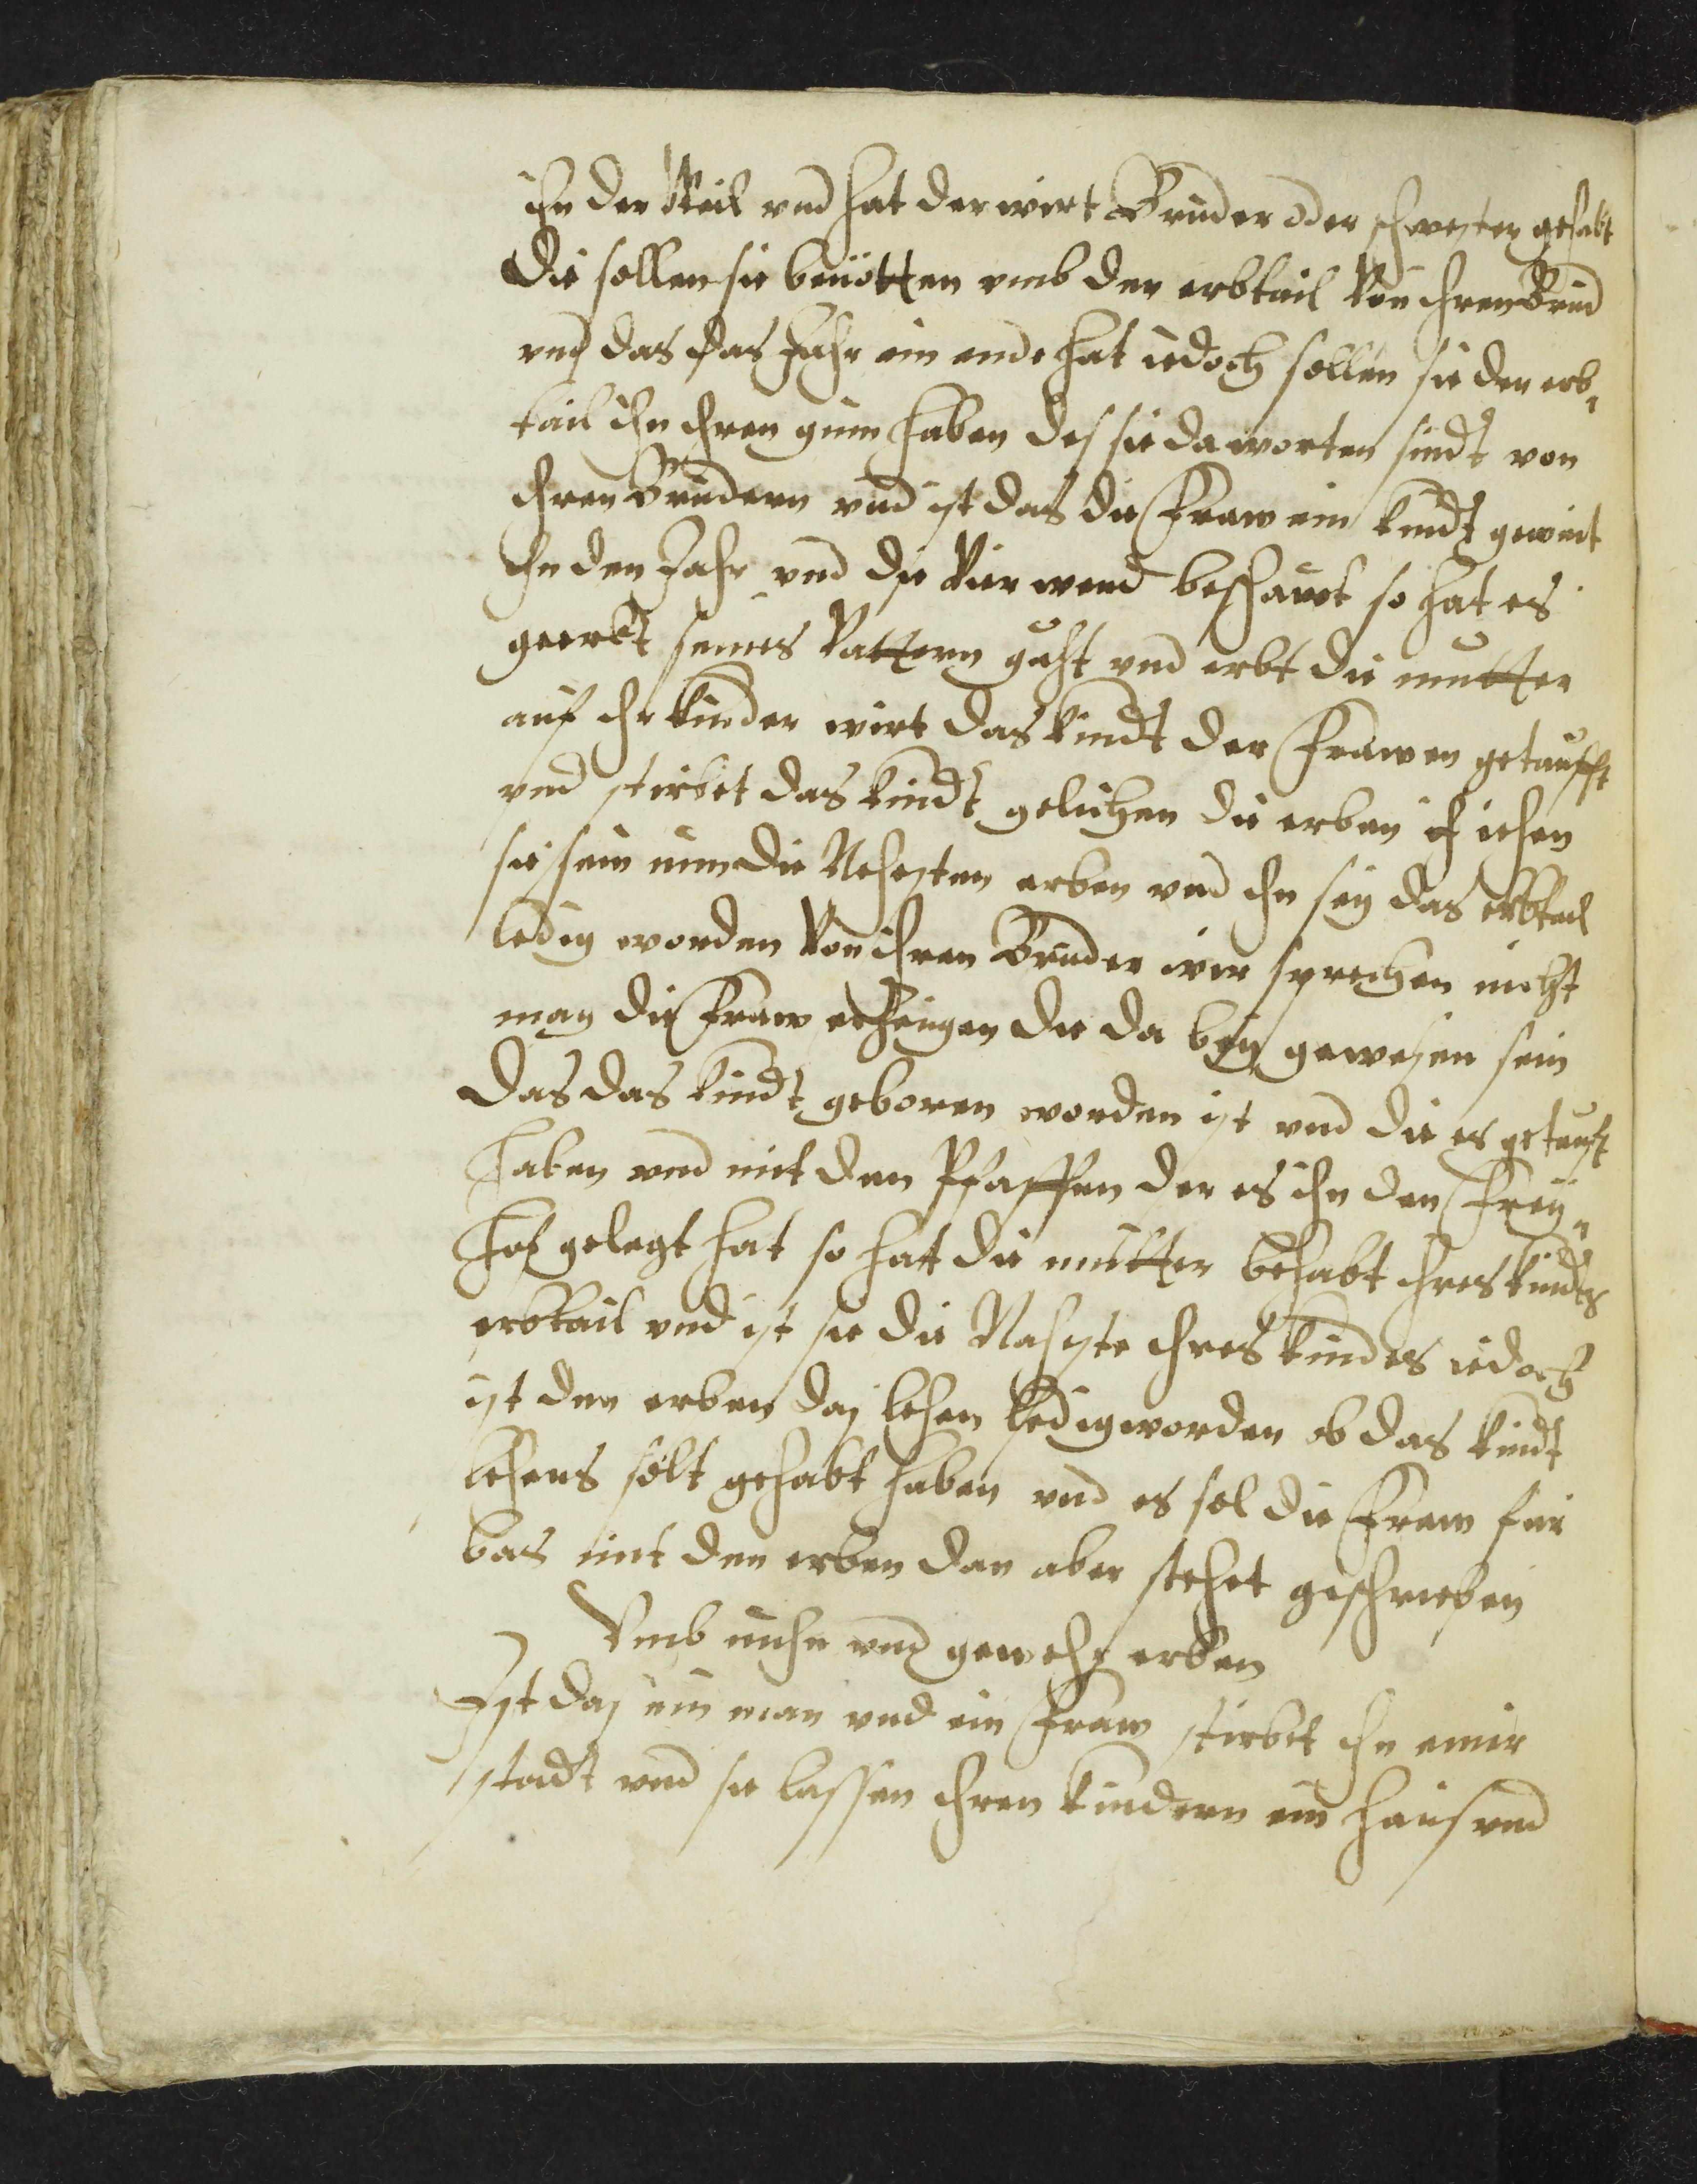 ihn der Weil vnd hat der wirt Bruder oder schwester gehabt
die sollen sie benötten vmb den erbtail Von ihren Brud
vnd das das Jahr ein ende hat iedoch sollen sie den erb¬
tail ihn ihren gwin haben des sie da worten sindt von
ihren Brudern vnd ist das die Fraw ein kindt gewint
ihn den Jahr vnd die Vier wend beschauet so hat es
geerbt seines Vattern guht vnd erbt die mutter
auf ihr kinder wirt das kindt der Frawen getaufft
vnd stirbet das kindt gelichen die erben iehen
sie sein nun die Nehesten erben vnd ihn sey das erbtail
ledig worden Von ihren Bruder wir sprechen nicht
mag die Fraw erzeugen die da bey gewesen sein
das das kindt geboren worden ist vnd die es getauft
haben vnd mit dem Pfaffen der es ihn den Frey¬
hof gelegt hat so hatt die mutter behabt ihres kindts
erbtail vnd ist sie die Naheste ihres kindes iedoch
ist den erben daz lehen ledig worden ob das kindt
lehens solt gehabt haben vnd es sol die Fraw fur
bas mit den erben dan aber stehet geschrieben
Vmb erben
Ist daz ein man vnd ein Fraw stirbet ihn einer
stadt vnd sie lassen ihren kindern ein haus vnd